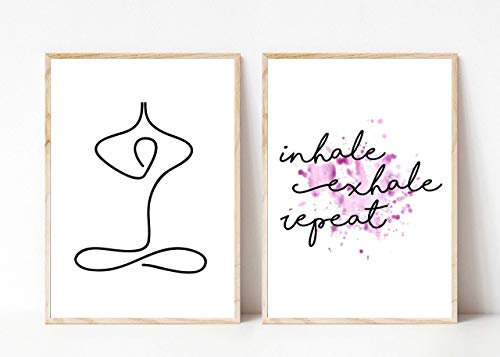 inhale
exhale
repeat